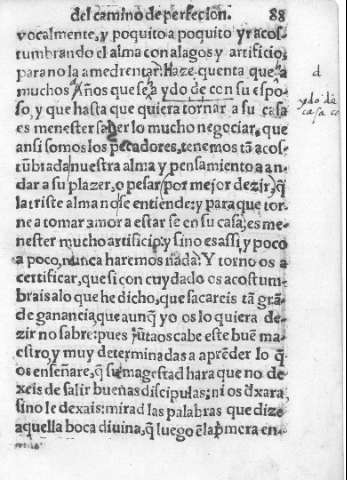 del camino de perfecion. 88
vocalmente, y poquito a poquito yr acos-
tumbrando el alma con alagos y artificio,
para no la amedrentar. Haze quenta que a
muchos Años que se a ydo de con su espo-
so, y que hasta que quiera tornar a su casa
es menester saber lo mucho negociar, que
ansi somos los pecadores, tenemos tā acos-
tūbrada nuestra alma y pensamiento a an-
dar a su plazer, o pesar por mejor dezir, q̄
la triste alma no se entiende: y para que tor-
ne a tomar amor a estar se en su casa, es me-
nester mucho artificio: y sino es assi, y poco
a poco, nunca haremos nada: Y torno os a
certificar, que si con cuydado os acostum-
brais a lo que he dicho, que sacareis tā grā-
de ganancia, que aunq̄ yo os lo quiera de-
zir no sabre: pues jūtaos cabe este buē ma-
estro, y muy determinadas a aprēder lo q̄
os enseñare, q̄ su magestad hara que no de-
xeis de salir buenas discipulas, ni os dxara,
sino le dexais: mirad las palabras que dize
aquella boca diuina, q̄ luego ē la pmera en-
d
ydo de
casa